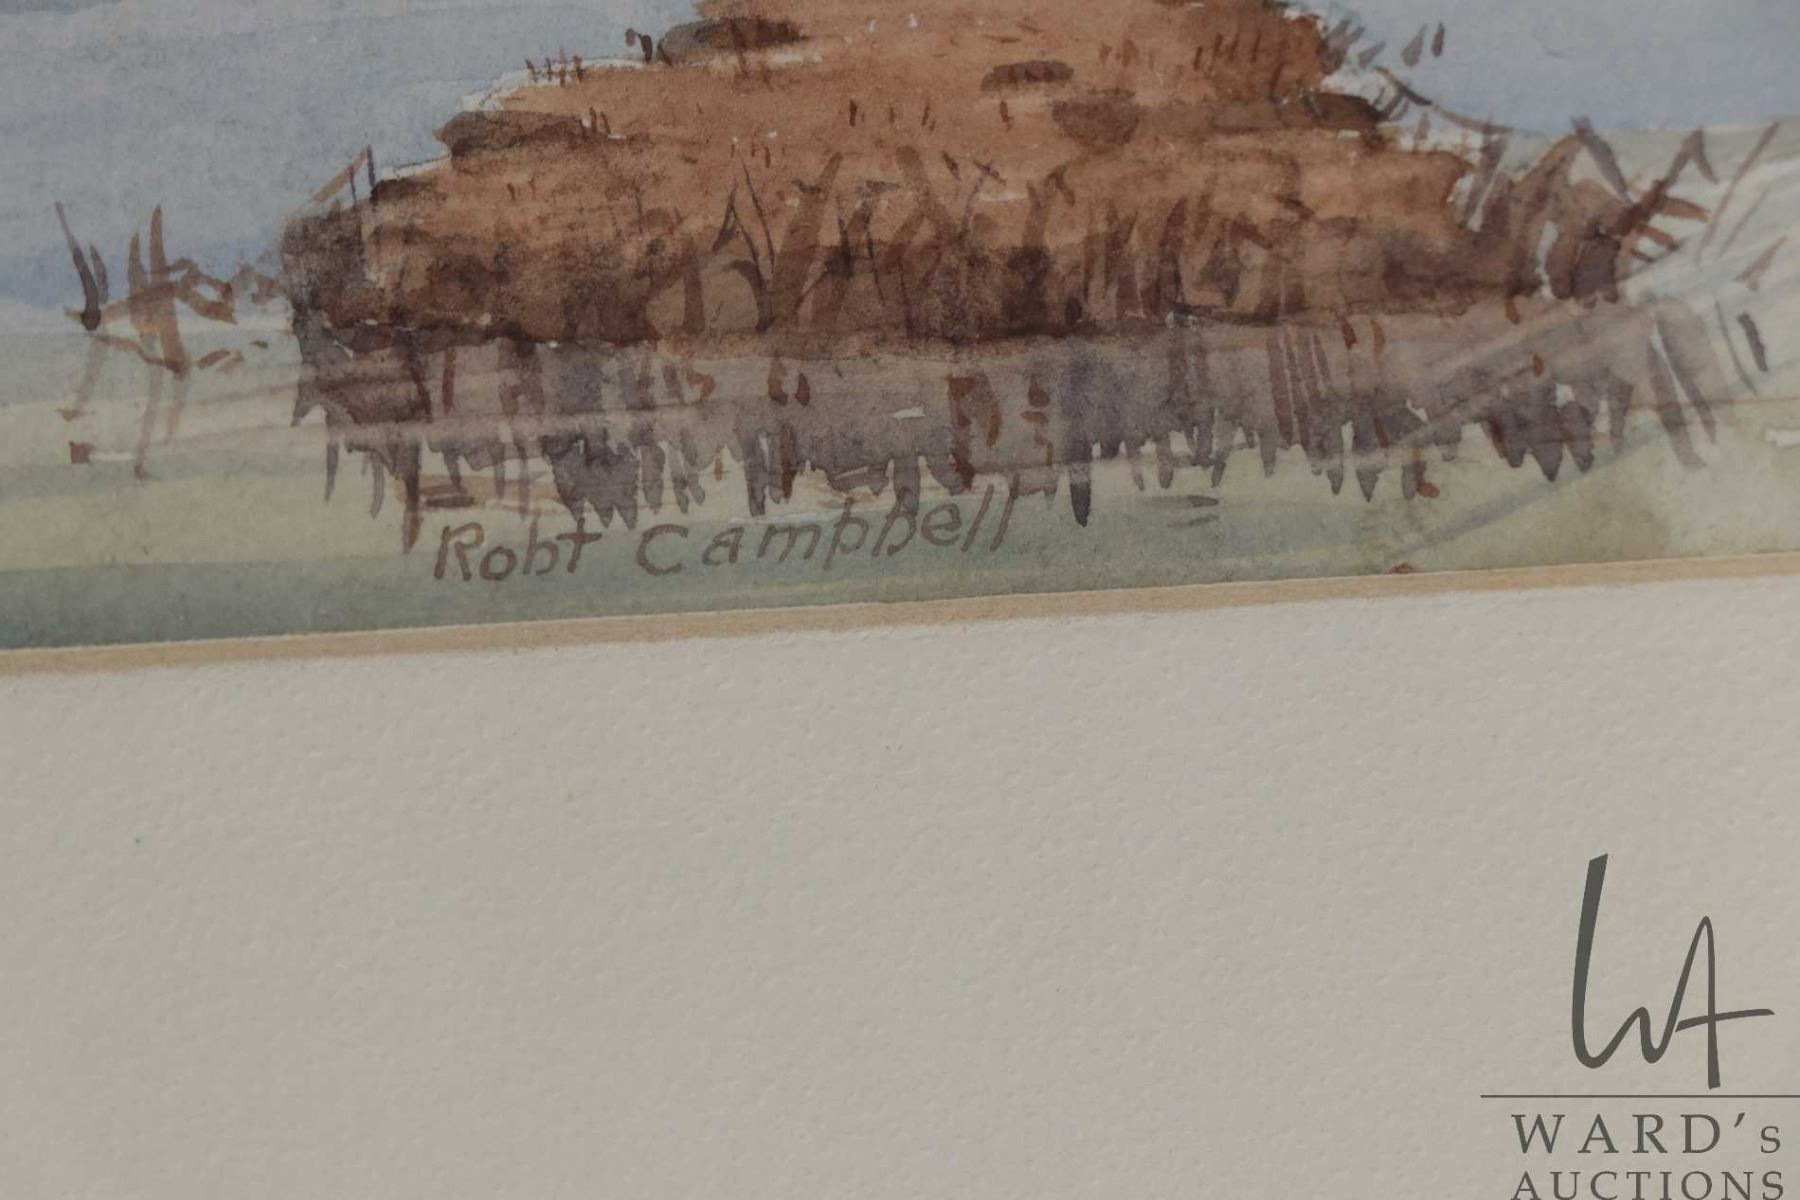 Robt Campbell
WA
WARD's
AUCTIONS